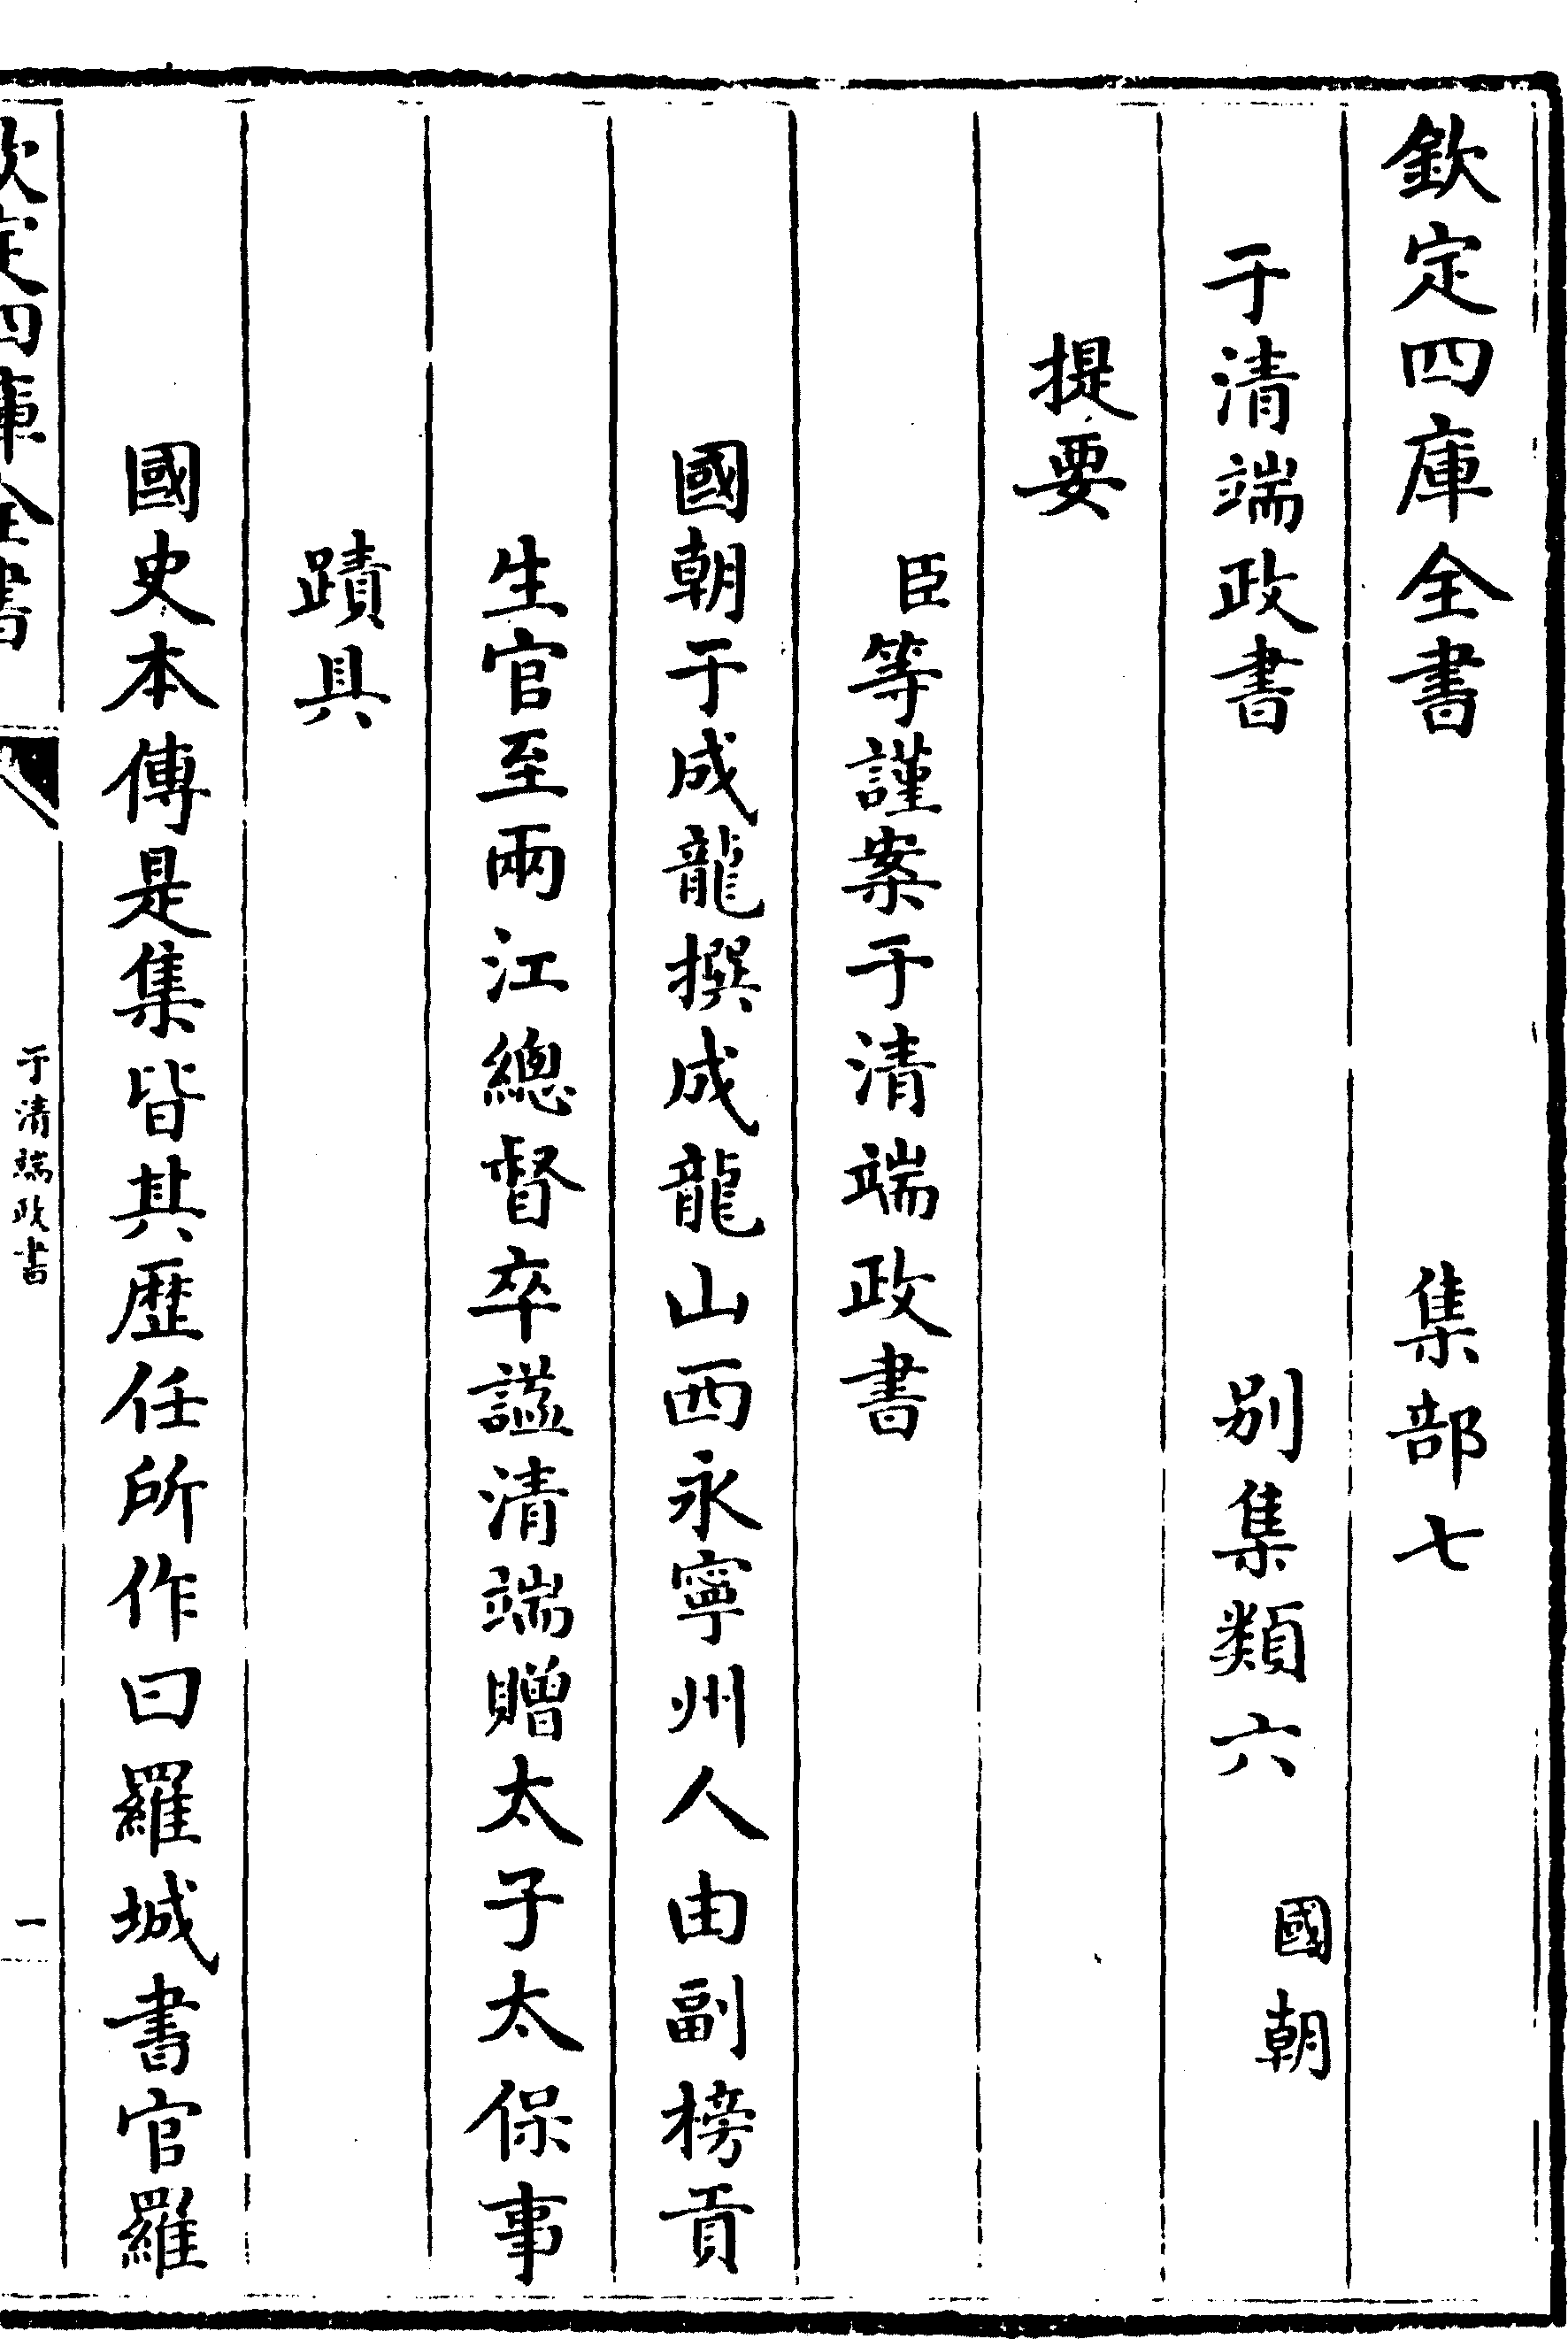 欽定四庫全書　集部七
于清端政書　别集類六國朝
提要
臣等謹案于清端政書
國朝于成龍撰成龍山西永寧州人由副榜貢
生官至兩江總督卒諡清端贈太子太保事
蹟具
國史本傳是集皆其歴任所作曰羅城書官羅
欽定四庫全書　于清端政書　一